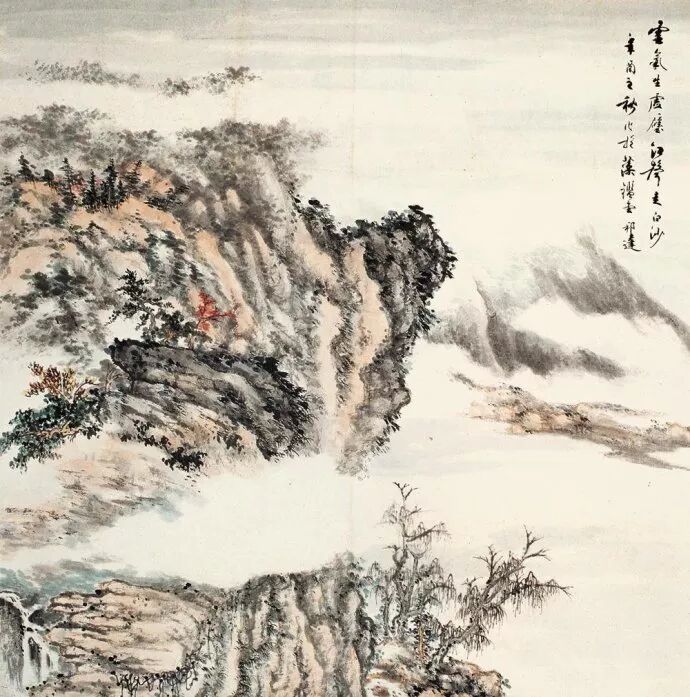 雲氣生虛壁江聲走白沙
辛酉之秋作於藻鑑堂